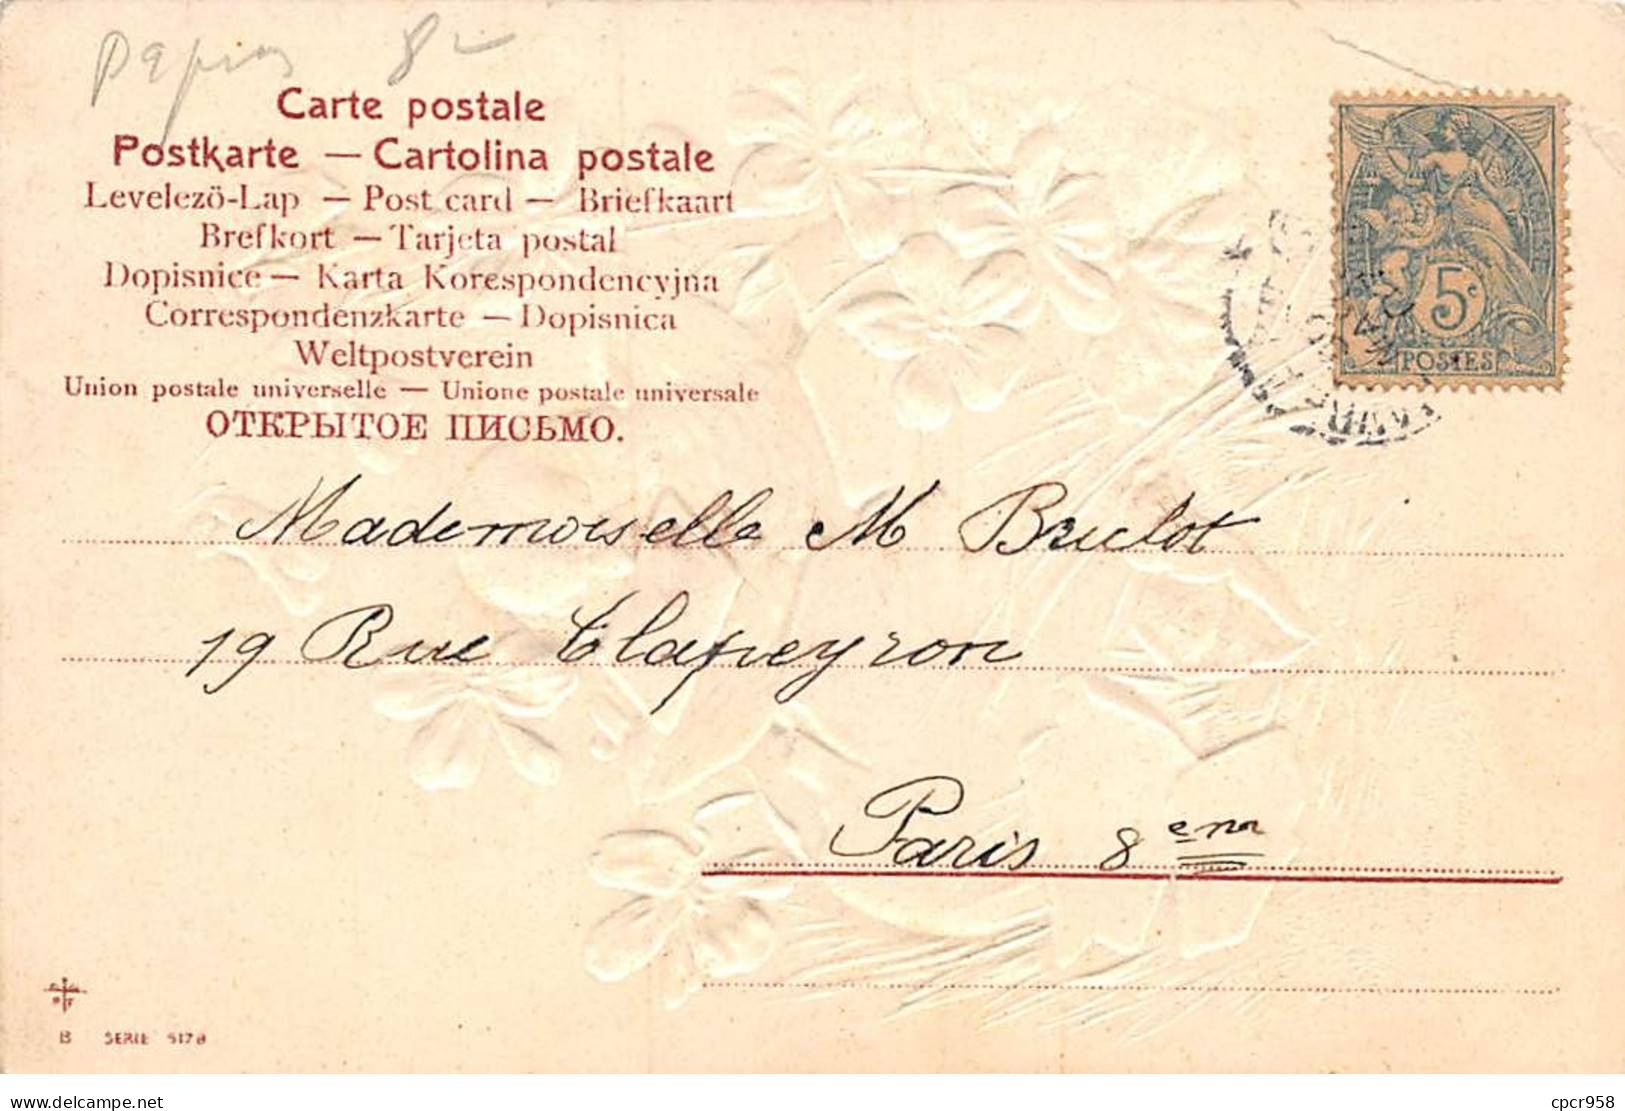 8
Carte postale
Postkarte — Cartolina postale
Levelezö-Lap — Post card — Briefkaart
Brefkort — Tarjeta postal
Dopisnice — Karta Korespondencyjna
Correspondenzkarte — Dopisnica
Weltpostverein
Union postale universelle — Unione postale universale
ОТКРЫТОЕ ПИСЬМО.
5c
POSTES
Mademoiselle M Brulot
19 Rue Clapeyron
Paris 8eme
B SERIE 5178
Delcampe.net
cpcr958